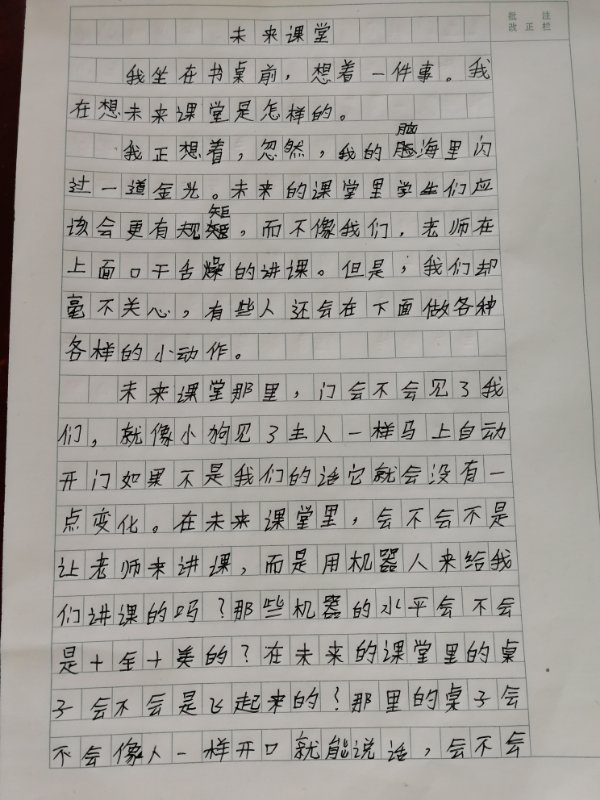 批注
改正栏
未来课堂
我坐在书桌前，想着一件事。我
在想未来课堂是怎样的。
脑
我正想着，忽然，我的脑海里闪
过一道金光。未来的课堂里学生们应
矩
该会更有规矩，而不像我们，老师在
上面口干舌燥的讲课。但是，我们却
毫不关心，有些人还会在下面做各种
各样的小动作。
未来课堂那里，门会不会见了我
们，就像小狗见了主人一样马上自动
开门如果不是我们的话它就会没有一
点变化。在未来课堂里，会不会不是
让老师来讲课，而是用机器人来给我
们讲课的吗？那些机器的水平会不会
是十全十美的？在未来的课堂里的桌
子会不会是飞起来的？那里的桌子会
不会像人一样开口就能说话，会不会